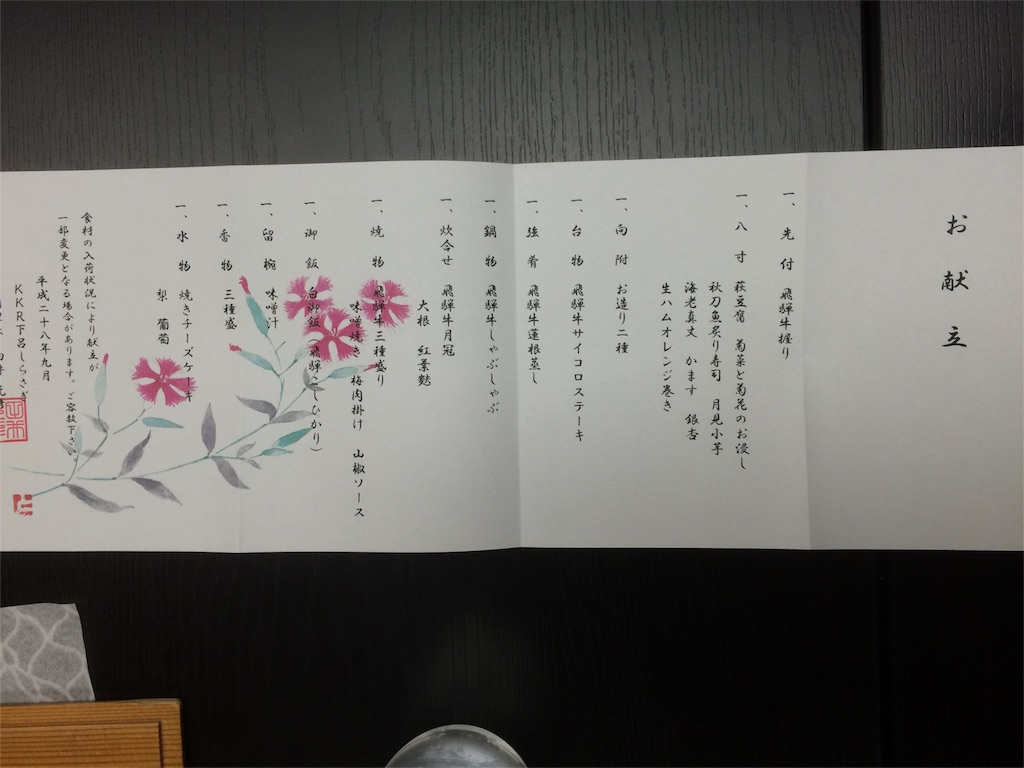 お献立
一、先付 飛騨牛握り
一、八寸 萩豆腐 菊菜と菊花のお浸し
秋刀魚炙り寿司 月見小芋
海老真丈 かます 銀杏
生ハムオレンジ巻き
一、向附 お造り二種
一、台物 飛騨牛サイコロステーキ
一、強肴 飛騨牛蓮根蒸し
一、鍋物 飛騨牛しゃぶしゃぶ
一、炊合せ 飛騨牛月冠
大根 紅葉麩
一、焼物 飛騨牛三種盛り
味噌焼き 梅肉掛け 山椒ソース
一、御飯 白御飯(飛騨こしひかり)
一、留椀 味噌汁
一、香物 三種盛
一、水物 焼きチーズケーキ
梨 葡萄
食材の入荷状況により献立が
一部変更となる場合があります。ご容赦下さい
平成二十八年九月
KKR下呂しらさぎ